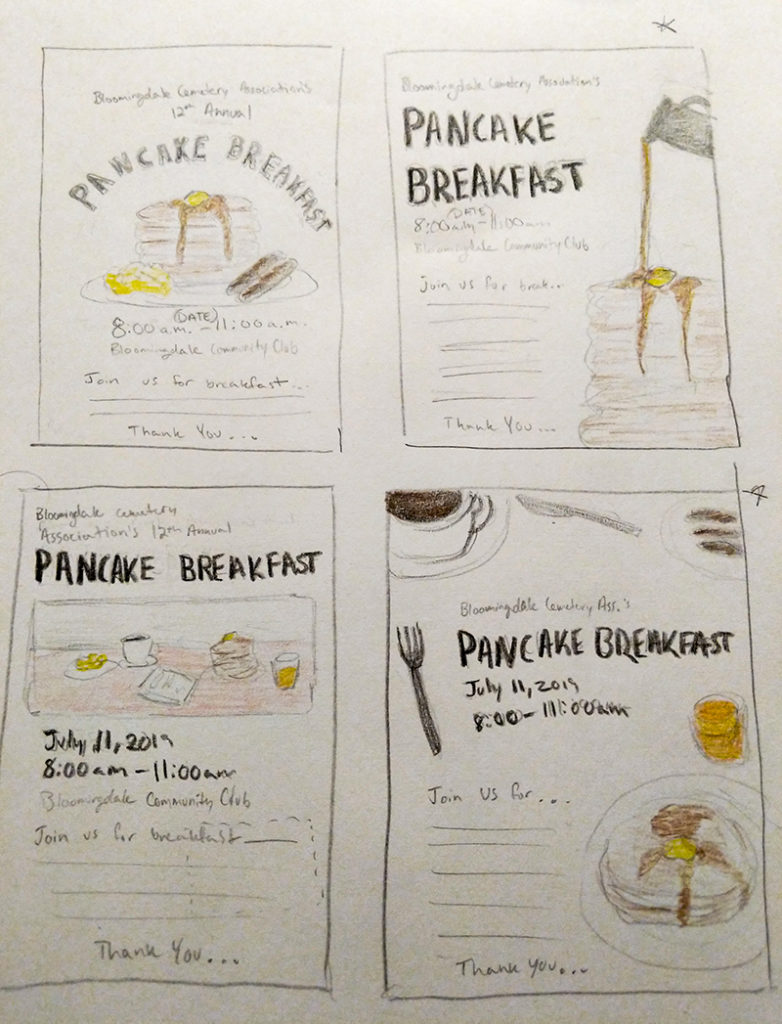 Bloomingdale Cemetery Association's
12th Annual
PANCAKE BREAKFAST
(DATE)
8:00 a.m. - 11:00 a.m.
Bloomingdale Community Club
Join us for breakfast...
Thank You...
Bloomingdale Cemetery Association's
PANCAKE
BREAKFAST
(DATE)
8:00am - 11:00am
Bloomingdale Community Club
Join us for break...
Thank You...
Bloomingdale Cemetery
Association's 12th Annual
PANCAKE BREAKFAST
July 11, 2019
8:00am - 11:00am
Bloomingdale Community Club
Join us for breakfast
Thank You...
Bloomingdale Cemetery Ass.'s
PANCAKE BREAKFAST
July 11, 2019
8:00 - 11:00am
Join us for...
Thank You...